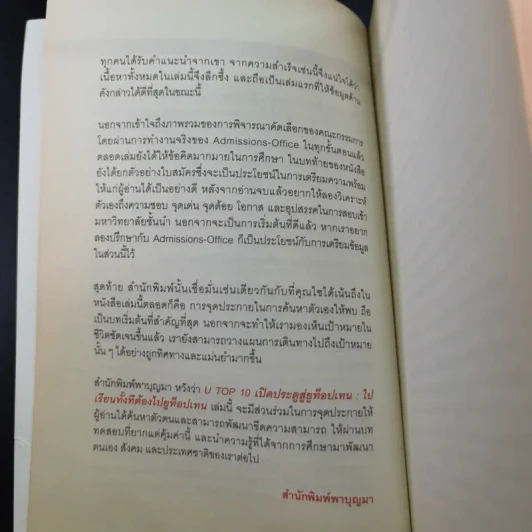 ทุกคนได้รับคำแนะนำจากเขา จากความสำเร็จเช่นนี้จึงแน่ใจได้ว่า
เนื้อหาทั้งหมดในเล่มนี้จึงลึกซึ้ง และถือเป็นเล่มแรกที่ให้ข้อมูลด้าน
ดังกล่าวได้ดีที่สุดในขณะนี้
นอกจากเข้าใจถึงภาพรวมของการพิจารณาคัดเลือกของคณะกรรมการ
โดยผ่านการทำงานจริงของ Admissions-Office ในทุกขั้นตอนแล้ว
ตลอดเล่มยังได้ให้ข้อคิดมากมายในการศึกษา ในบทท้ายของหนังสือ
ยังได้ยกตัวอย่างใบสมัครซึ่งจะเป็นประโยชน์ในการเตรียมความพร้อม
ให้แก่ผู้อ่านได้เป็นอย่างดี หลังจากอ่านจบแล้วอยากให้ลองวิเคราะห์
ตัวเองถึงความชอบ จุดเด่น จุดด้อย โอกาส และอุปสรรคในการสอบเข้า
มหาวิทยาลัยชั้นนำ นอกจากจะเป็นการเริ่มต้นที่ดีแล้ว หากเราอยาก
ลองปรึกษากับ Admissions-Office ก็เป็นประโยชน์กับการเตรียมข้อมูล
ในส่วนนี้ไว้
สุดท้าย สำนักพิมพ์นั้นเชื่อมั่นเช่นเดียวกันกับที่คุณไซได้เน้นถึงใน
หนังสือเล่มนี้ตลอดก็คือ การจุดประกายในการค้นหาตัวเองให้พบ ถือ
เป็นบทเริ่มต้นที่สำคัญที่สุด นอกจากจะทำให้เรามองเห็นเป้าหมายใน
ชีวิตชัดเจนขึ้นแล้ว เรายังสามารถวางแผนการเดินทางไปถึงเป้าหมาย
นั้น ๆ ได้อย่างถูกทิศทางและแม่นยำมากขึ้น
สำนักพิมพ์พาบุญมา หวังว่า U TOP 10 เปิดประตูสู่ยูท็อปเทน : ไป
เรียนทั้งทีต้องไปยูท็อปเทน เล่มนี้ จะมีส่วนร่วมในการจุดประกายให้
ผู้อ่านได้ค้นหาตัวตนและสามารถพัฒนาขีดความสามารถ ให้ผ่านบท
ทดสอบที่ยากแต่คุ้มค่านี้ และนำความรู้ที่ได้จากการศึกษามาพัฒนา
ตนเอง สังคม และประเทศชาติของเราต่อไป
สำนักพิมพ์พาบุญมา